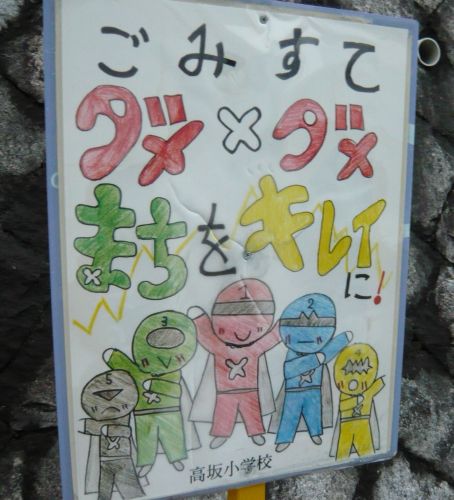 ごみすて
ダメ×ダメ
まちをキレイ
に!
3 1 2
5 4
高坂小学校